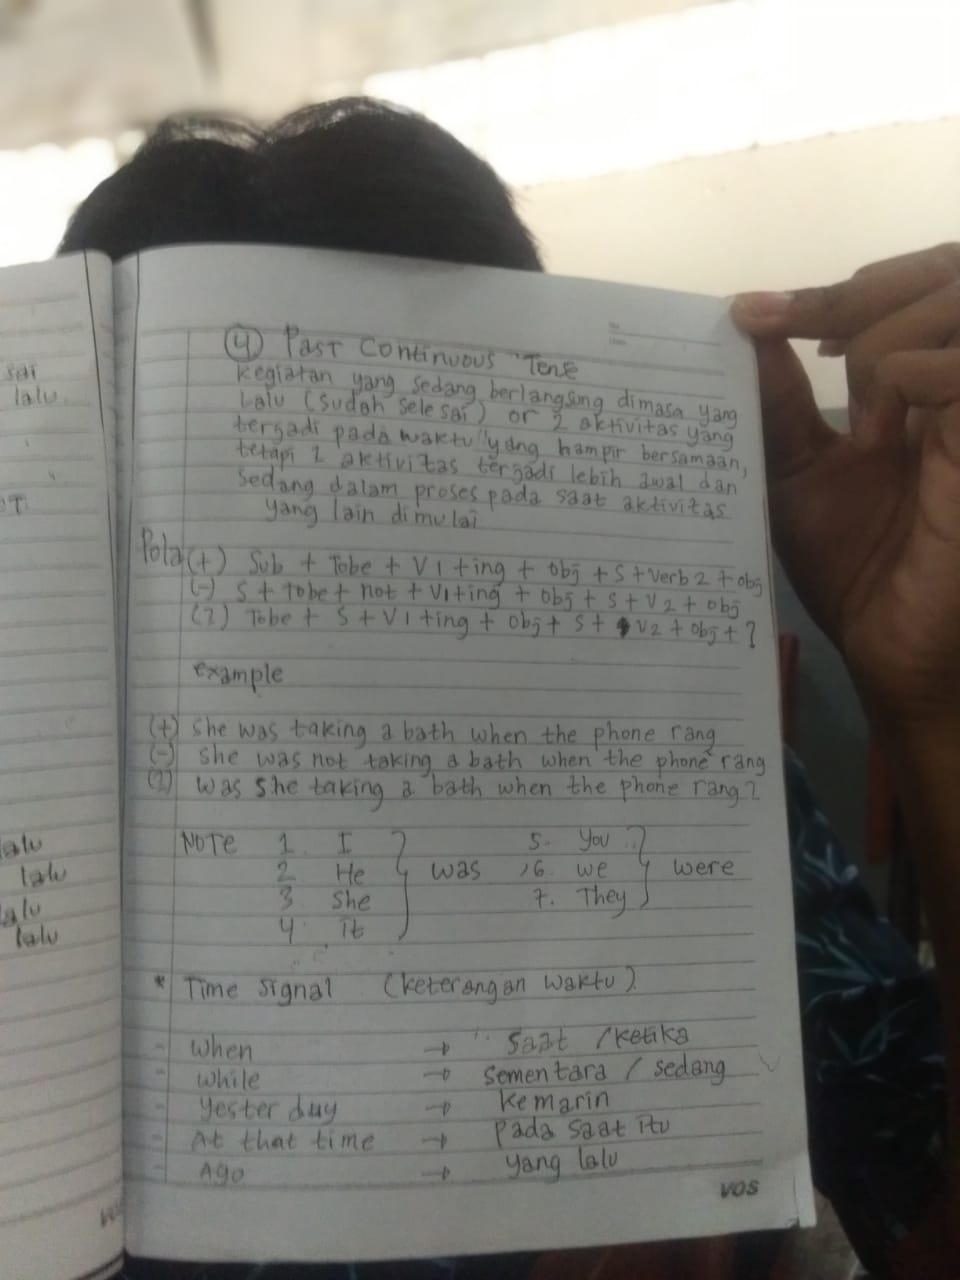 sai
lalu
OT
lalu
lalu
lalu
lalu
4 Past Continuous Tense
Kegiatan yang sedang berlangsung dimasa yang
Lalu (sudah selesai) or 2 aktivitas yang
terjadi pada waktu yang hampir bersamaan,
tetapi 1 aktivitas terjadi lebih awal dan
sedang dalam proses pada saat aktivitas
yang lain dimulai
Pola (+) Sub + Tobe + V1 + ing + obj + S + Verb 2 + obj
(-) S + tobe + not + V1 + ing + obj + S + V2 + obj
(?) Tobe + S + V1 + ing + obj + S + V2 + obj + ?
example
(+) She was taking a bath when the phone rang
(-) She was not taking a bath when the phone rang
(?) was she taking a bath when the phone rang?
NOTE 1 I } was 5. You } were
2 He 6. we
3 She 7. They
4. it
* Time signal (keterangan waktu)
- When → saat / ketika
- While → sementara / sedang
- Yesterday → kemarin
- At that time → pada saat itu
- Ago → yang lalu
VOS